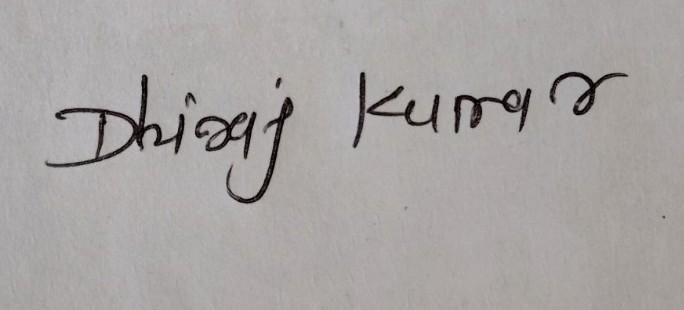 Dhiraj Kumar